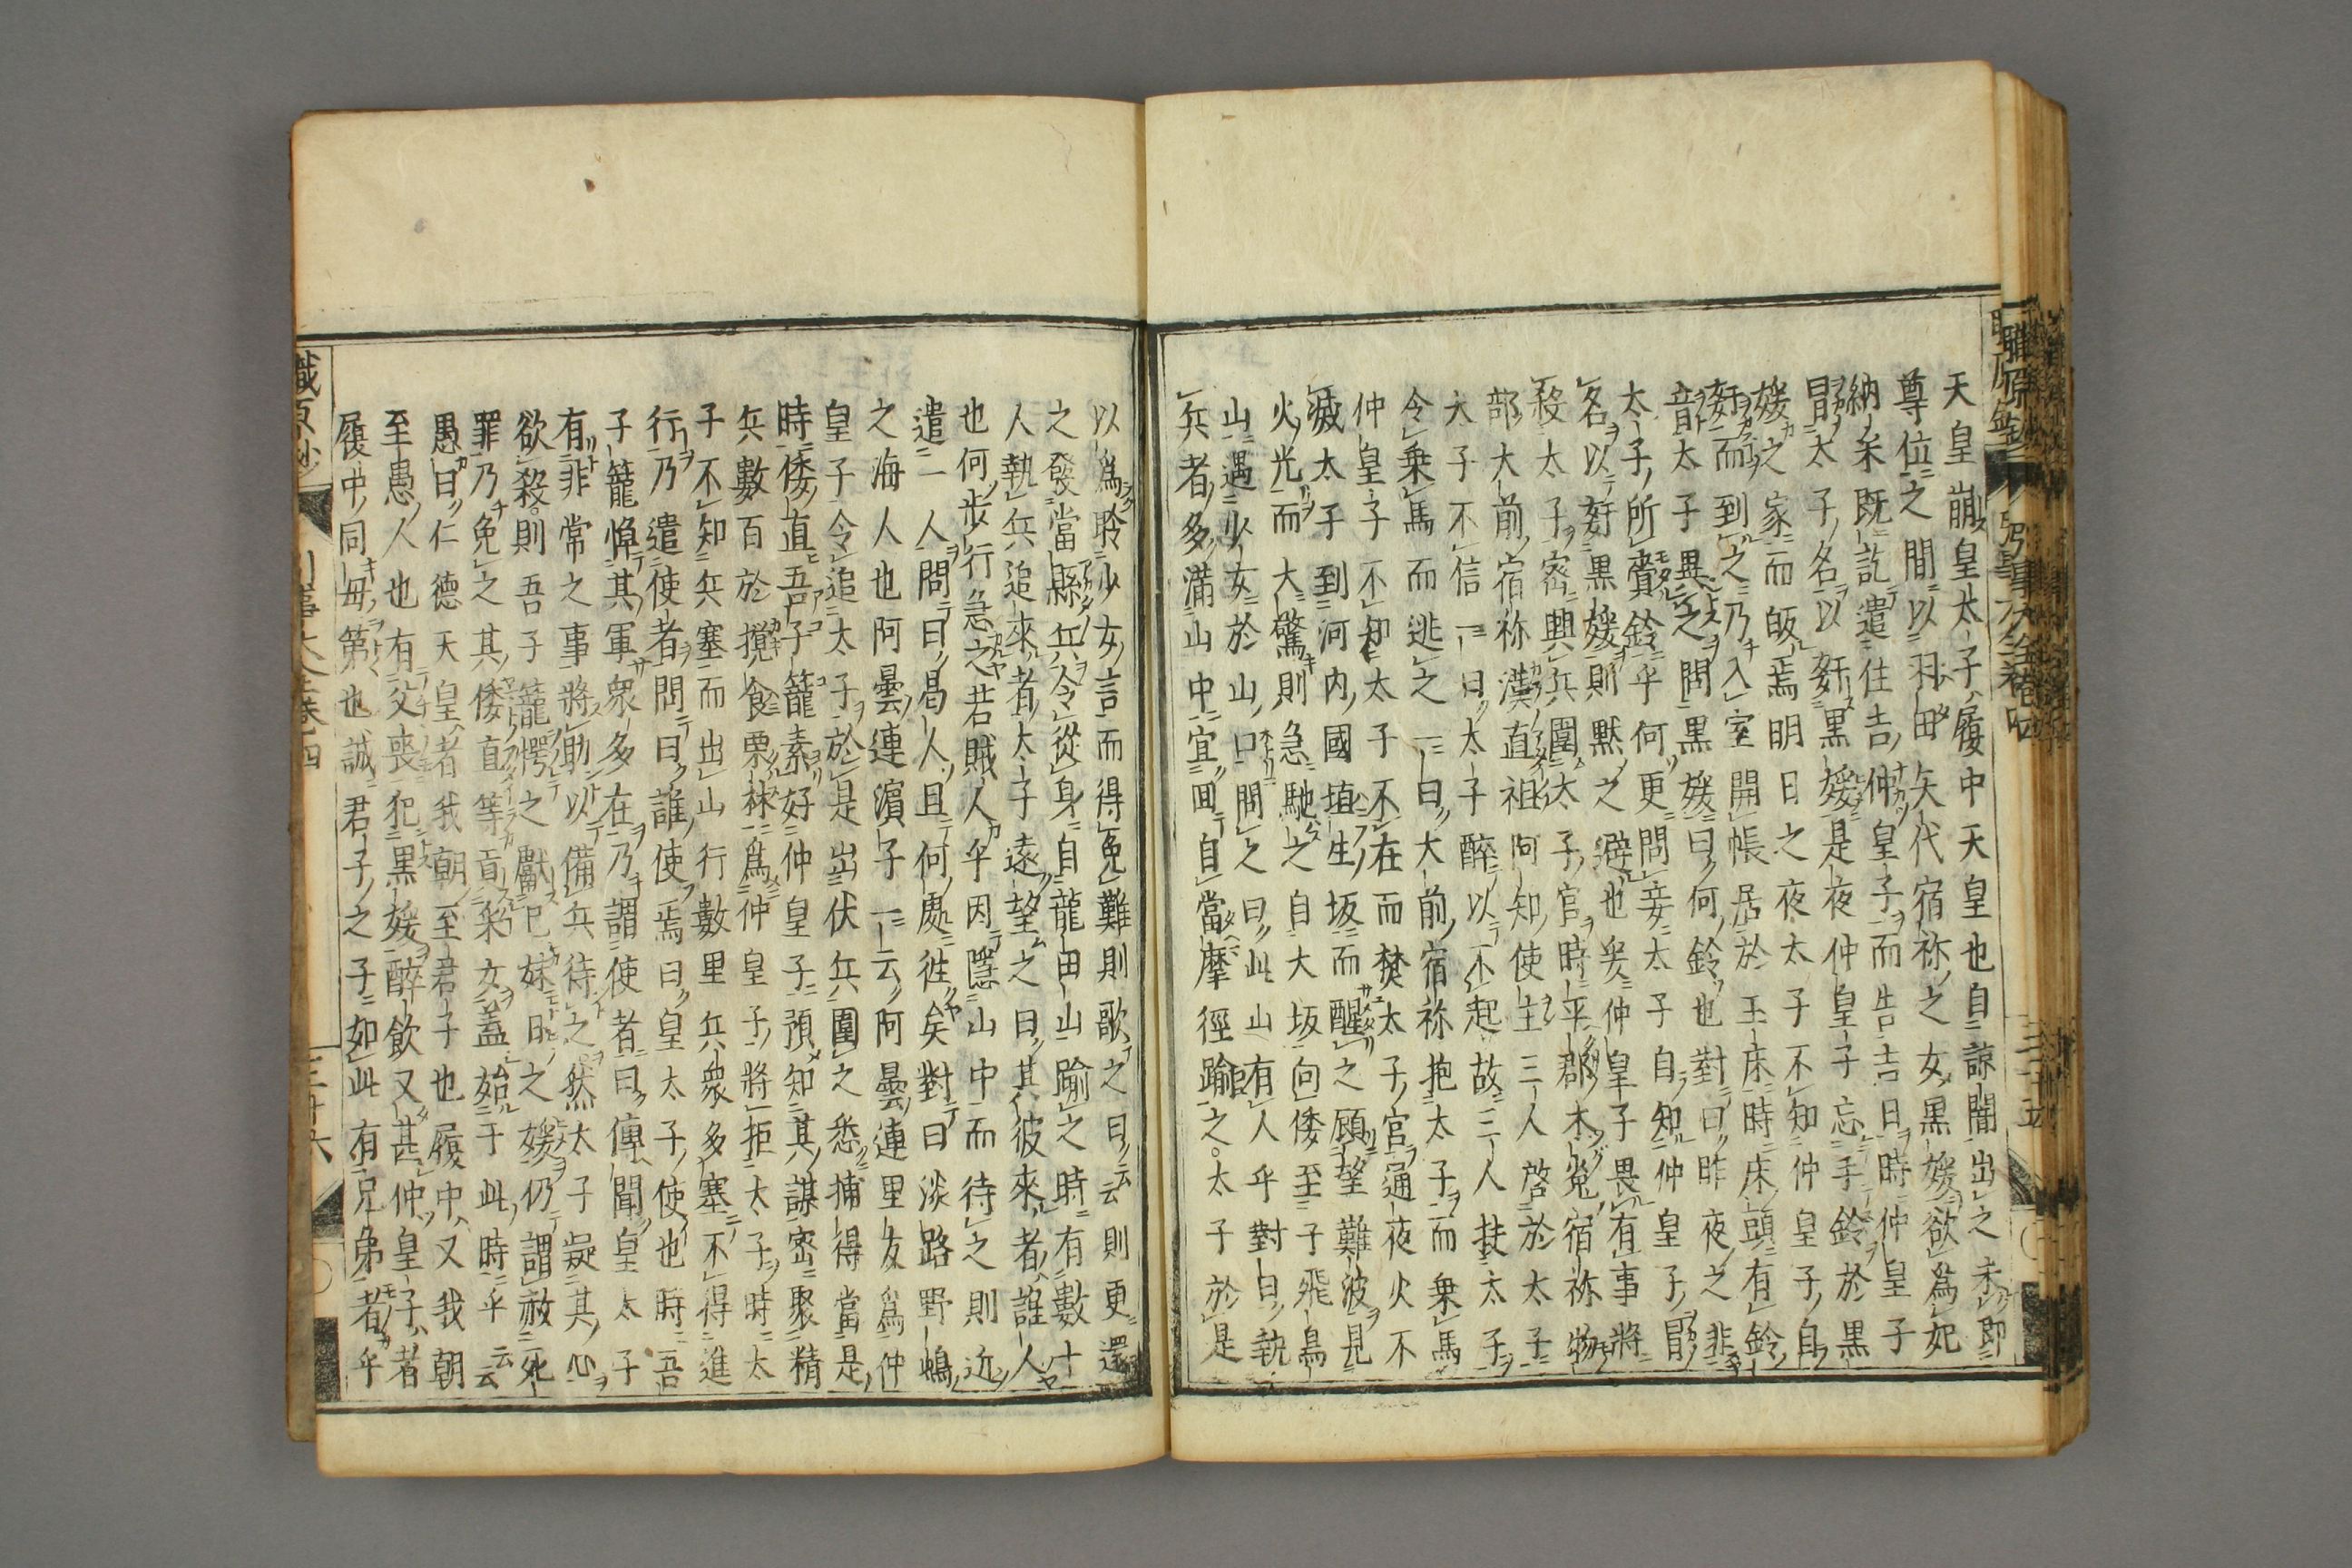 天皇崩皇太子履中天皇也自諒闇出之未即
尊位之間以羽田矢代宿祢之女黒媛欲為妃
納采既訖遣住吉仲皇子而告吉日時仲皇子
冒太子名以姧黒媛是夜仲皇子忘手鈴於黒
媛之家而皈焉明日之夜太子不知仲皇子自
姧而到之乃入室開帳居於玉床時床頭有鈴
音太子異之問黒媛曰何鈴也對曰昨夜之非
太子所賷鈴乎何更問妾太子自知仲皇子冒
名以姧黒媛則黙之避也爰仲皇子畏有事將
殺太子密興兵圍太子宮時平郡木菟宿祢物
部大前宿祢漢直祖阿知使主三人啓於太子
太子不信一曰太子醉以不起故三人扶太子
令乗馬而逃之一曰大前宿祢抱太子而乗馬
仲皇子不知太子不在而焚太子宮通夜火不
滅太子到河内國埴生坂而醒之顧望難波見
火光而大驚則急馳之自大坂向倭至子飛鳥
山遇少女於山口問之曰此山有人乎對曰執
兵者多滿山中宜囬自當摩徑踰之太子於是
以為聆少女言而得免難則歌之曰云云則更還
之發當縣兵令從身自龍田山踰之時有數十
人執兵追來者太子遠望之曰其彼來者誰人
也何歩行急之若賊人乎因隱山中而待之則近
遣一人問曰曷人且何處徃矣對曰淡路野嶋
之海人也阿曇連濵子一云阿曇連里友為仲
皇子令追太子於是出伏兵圍之悉捕得當是
時倭直吾子籠素好仲皇子預知其謀密聚精
兵數百於攪食栗林為仲皇子將拒太子時太
子不知兵塞而出山行數里兵衆多塞不得進
行乃遣使者問曰誰使焉曰皇太子使也時吾
子籠憚其軍衆多在乃謂使者曰傳聞皇太子
有非常之事將助以備兵待之然太子疑其心
欲殺則吾子籠愕之獻已妹日之媛仍謂赦死
罪乃免之其倭直等貢采女蓋始于此時乎云云
愚曰仁德天皇者我朝至君子也履中又我朝
至愚人也有父喪犯黒媛醉飲又甚仲皇子者
履中同毋第也誠君子之子如此有兄弟者乎
三十六